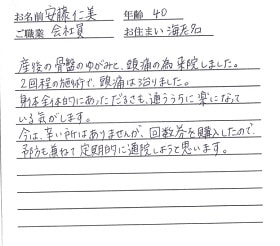 お名前 安藤仁美 年齢 40
ご職業 会社員 お住まい 海老名
産後の骨盤のゆがみと、頭痛の為来院しました。
2回程の施術で、頭痛は治りました。
身体全体的にあっただるさも、通ううちに楽になって
いる気がします。
今は、辛い所はありませんが、回数券を購入したので、
予防も兼ねて定期的に通院しようと思います。